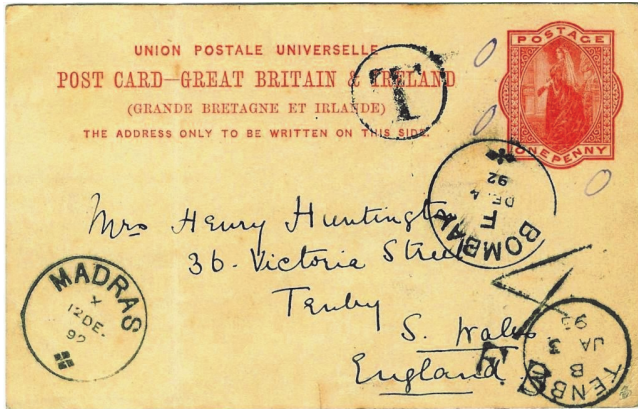 UNION POSTALE UNIVERSELLE
POST CARD—GREAT BRITAIN & IRELAND
(GRANDE BRETAGNE ET IRLANDE)
THE ADDRESS ONLY TO BE WRITTEN ON THIS SIDE.
T
POSTAGE
ONE PENNY
BOMBAY
F
DE. 4
92
Mrs Henry Huntington
36. Victoria Street
Tenby
S. Wales
England.
MADRAS
X
12 DE.
92
TENBY
B
JA 3
93